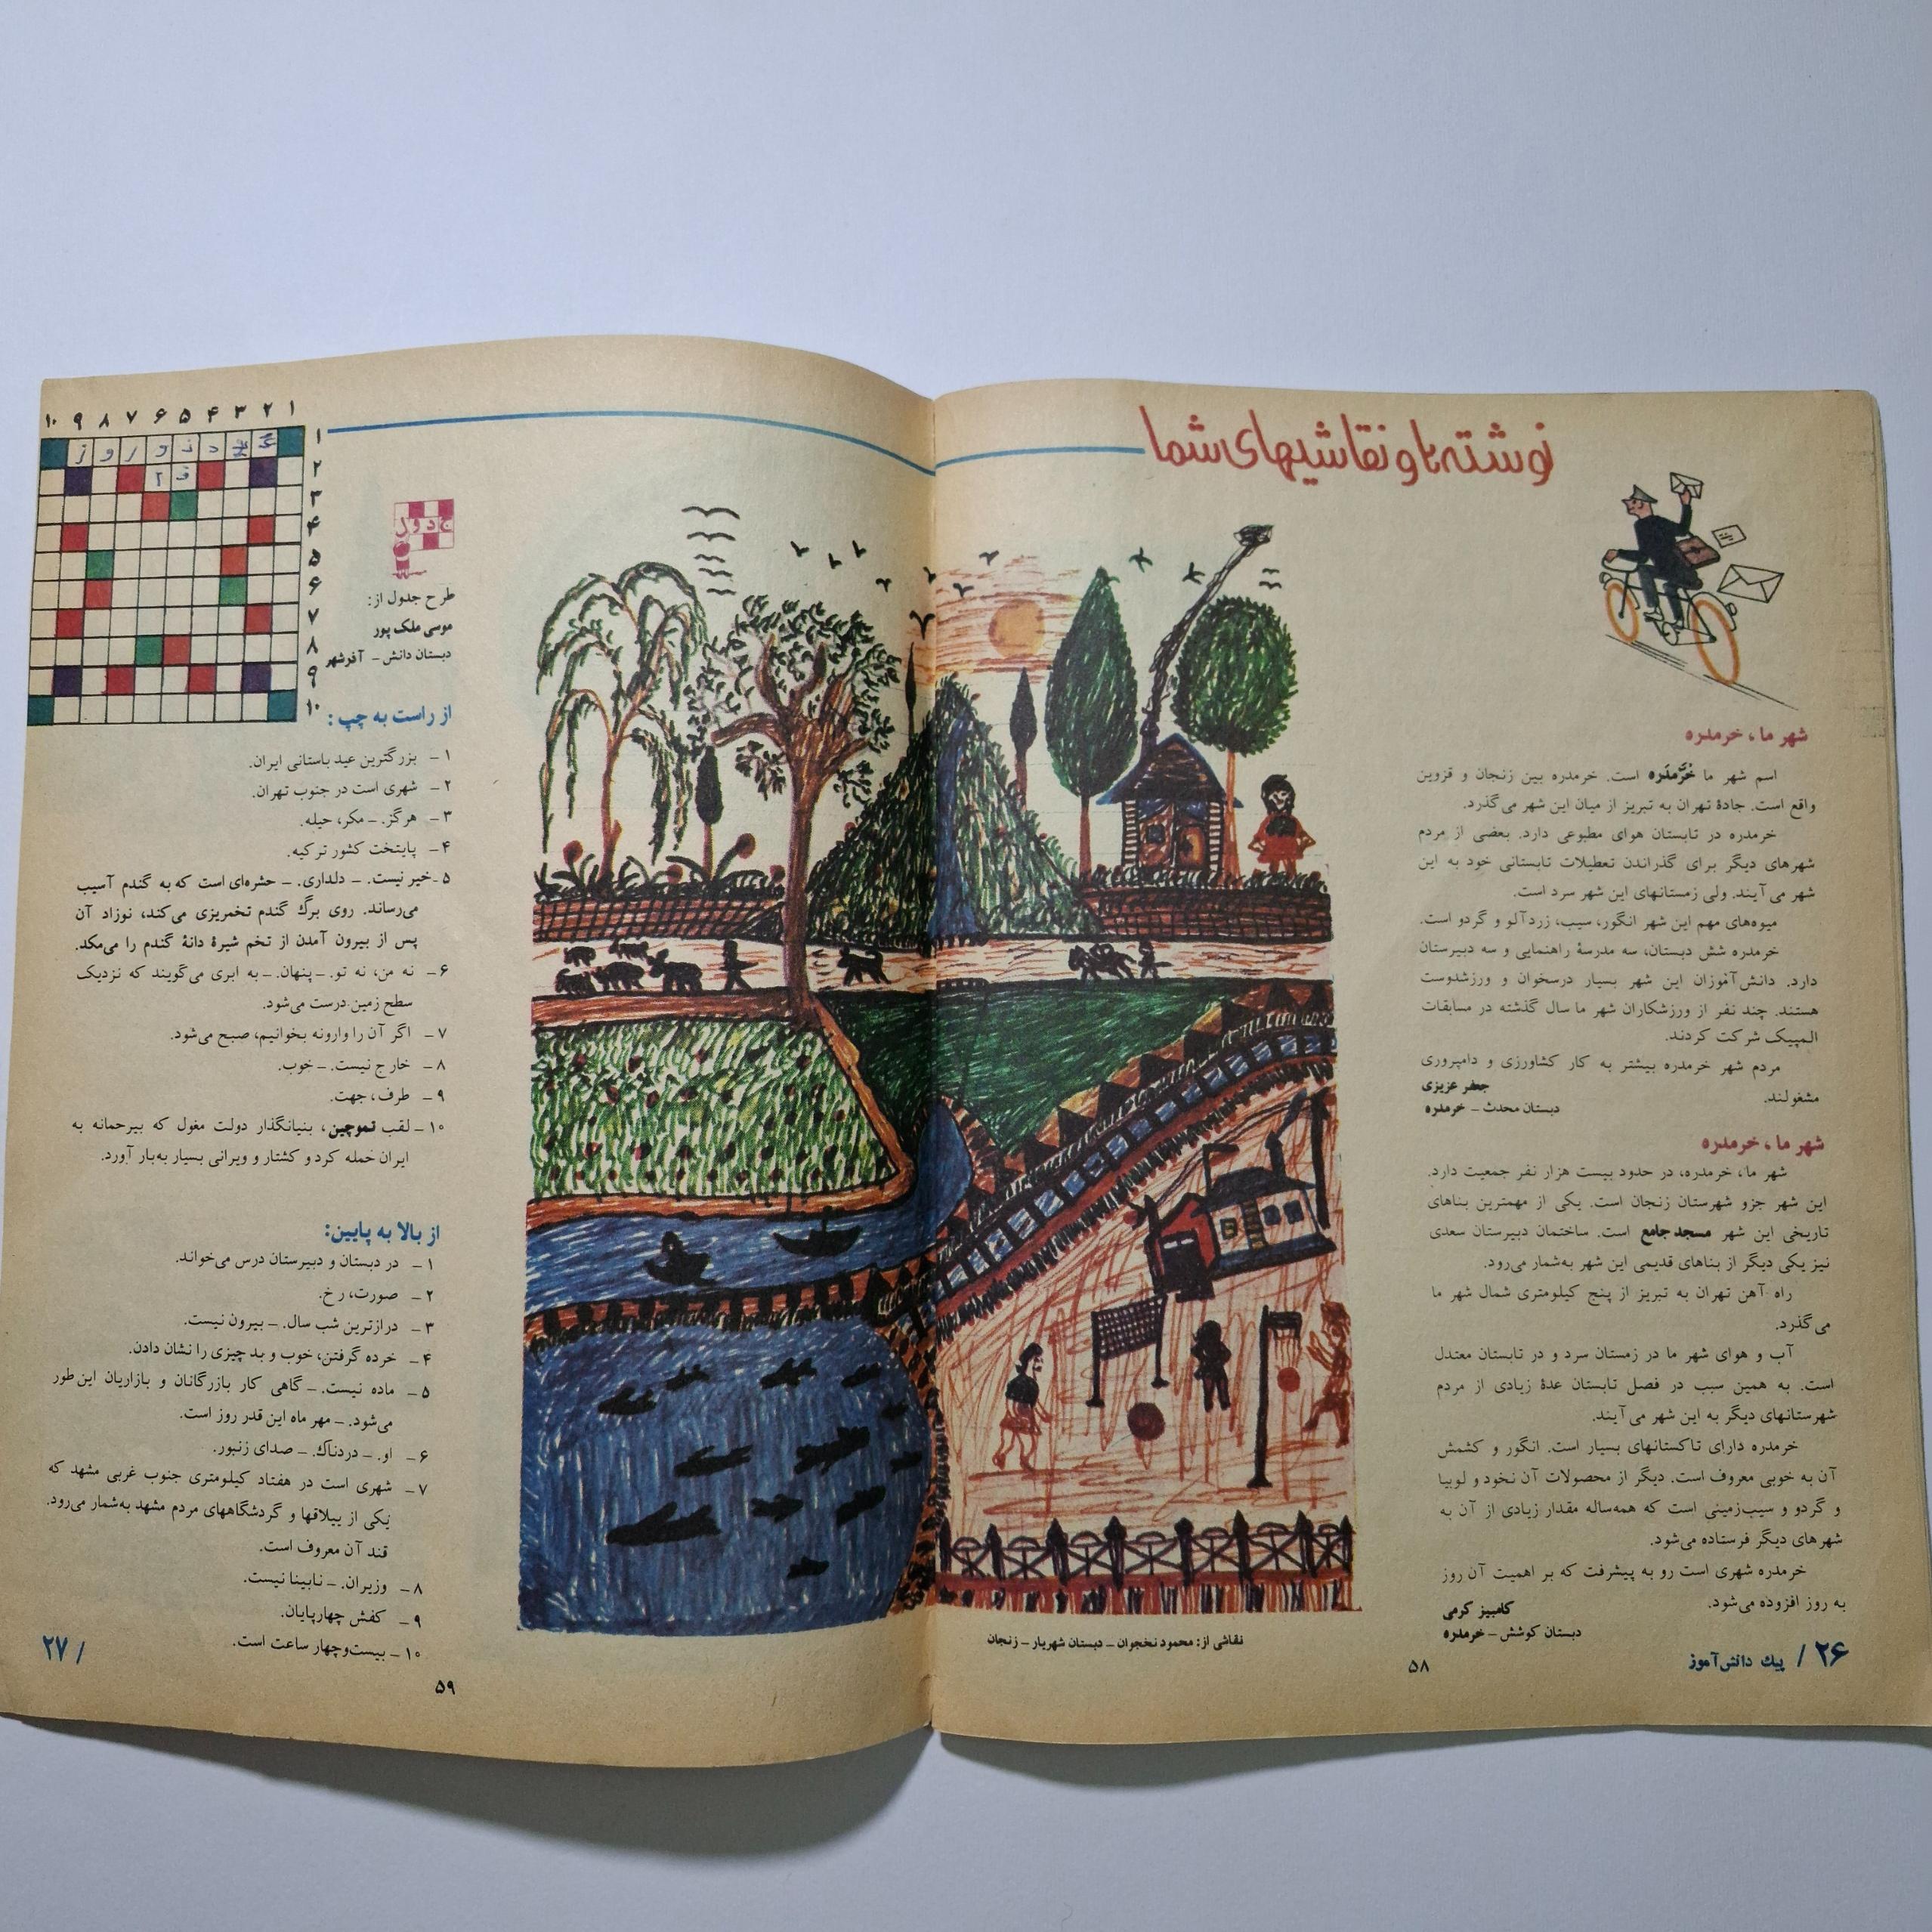 نوشته‌ها و نقاشیهای شما
شهر ما، خرمدره
اسم شهر ما خُرَّمدَره است. خرمدره بین زنجان و قزوین
واقع است. جادهٔ تهران به تبریز از میان این شهر می‌گذرد.
خرمدره در تابستان هوای مطبوعی دارد. بعضی از مردم
شهرهای دیگر برای گذراندن تعطیلات تابستانی خود به این
شهر می‌آیند. ولی زمستانهای این شهر سرد است.
میوه‌های مهم این شهر انگور، سیب، زردآلو و گردو است.
خرمدره شش دبستان، سه مدرسهٔ راهنمایی و سه دبیرستان
دارد. دانش‌آموزان این شهر بسیار درسخوان و ورزشدوست
هستند. چند نفر از ورزشکاران شهر ما سال گذشته در مسابقات
المپیک شرکت کردند.
مردم شهر خرمدره بیشتر به کار کشاورزی و دامپروری
مشغولند.
جعفر عزیزی
دبستان محدث – خرمدره
شهر ما، خرمدره
شهر ما، خرمدره، در حدود بیست هزار نفر جمعیت دارد.
این شهر جزو شهرستان زنجان است. یکی از مهمترین بناهای
تاریخی این شهر مسجد جامع است. ساختمان دبیرستان سعدی
نیز یکی دیگر از بناهای قدیمی این شهر به‌شمار می‌رود.
راه آهن تهران به تبریز از پنج کیلومتری شمال شهر ما
می‌گذرد.
آب و هوای شهر ما در زمستان سرد و در تابستان معتدل
است. به همین سبب در فصل تابستان عدهٔ زیادی از مردم
شهرستانهای دیگر به این شهر می‌آیند.
خرمدره دارای تاکستانهای بسیار است. انگور و کشمش
آن به خوبی معروف است. دیگر از محصولات آن نخود و لوبیا
و گردو و سیب‌زمینی است که همه‌ساله مقدار زیادی از آن به
شهرهای دیگر فرستاده می‌شود.
خرمدره شهری است رو به پیشرفت که بر اهمیت آن روز
به روز افزوده می‌شود.
کامبیز کرمی
دبستان کوشش – خرمدره
۲۶ / پیك دانش‌آموز
۵۸
نقاشی از: محمود نخجوان – دبستان شهریار – زنجان
۱ ۲ ۳ ۴ ۵ ۶ ۷ ۸ ۹ ۱۰
۱
۲
۳
۴
۵
۶
۷
۸
۹
۱۰
د ن و ر و ز
جدول
طرح جدول از:
موسی ملک پور
دبستان دانش – آذرشهر
از راست به چپ:
۱ – بزرگترین عید باستانی ایران.
۲ – شهری است در جنوب تهران.
۳ – هرگز. – مکر، حیله.
۴ – پایتخت کشور ترکیه.
۵ – خیر نیست. – دلداری. – حشره‌ای است که به گندم آسیب
می‌رساند. روی برگ گندم تخمریزی می‌کند، نوزاد آن
پس از بیرون آمدن از تخم شیرهٔ دانهٔ گندم را می‌مکد.
۶ – نه من، نه تو. – پنهان. – به ابری می‌گویند که نزدیک
سطح زمین درست می‌شود.
۷ – اگر آن را وارونه بخوانیم، صبح می‌شود.
۸ – خارج نیست. – خوب.
۹ – طرف، جهت.
۱۰ – لقب تموچین، بنیانگذار دولت مغول که بیرحمانه به
ایران حمله کرد و کشتار و ویرانی بسیار به‌بار آورد.
از بالا به پایین:
۱ – در دبستان و دبیرستان درس می‌خواند.
۲ – صورت، رخ.
۳ – درازترین شب سال. – بیرون نیست.
۴ – خرده گرفتن، خوب و بد چیزی را نشان دادن.
۵ – ماده نیست. – گاهی کار بازرگانان و بازاریان این‌طور
می‌شود. – مهر ماه این قدر روز است.
۶ – او. – دردناك. – صدای زنبور.
۷ – شهری است در هفتاد کیلومتری جنوب غربی مشهد که
یکی از ییلاقها و گردشگاههای مردم مشهد به‌شمار می‌رود.
قند آن معروف است.
۸ – وزیران. – نابینا نیست.
۹ – کفش چهارپایان.
۱۰ – بیست‌وچهار ساعت است.
/ ۲۷
۵۹